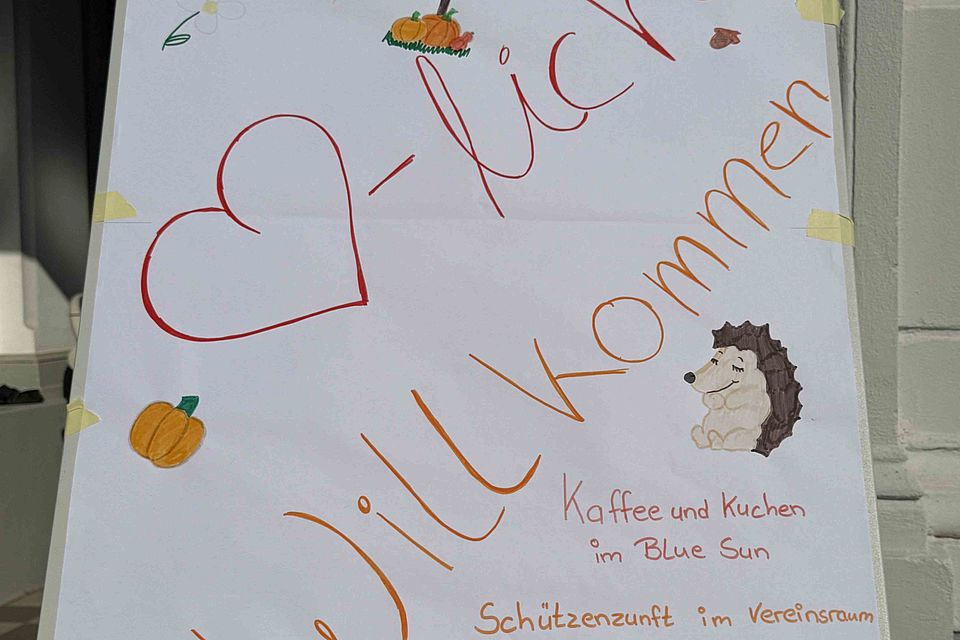 ♡-lich
Willkommen
Kaffee und Kuchen
im Blue Sun
Schützenzunft im Vereinsraum